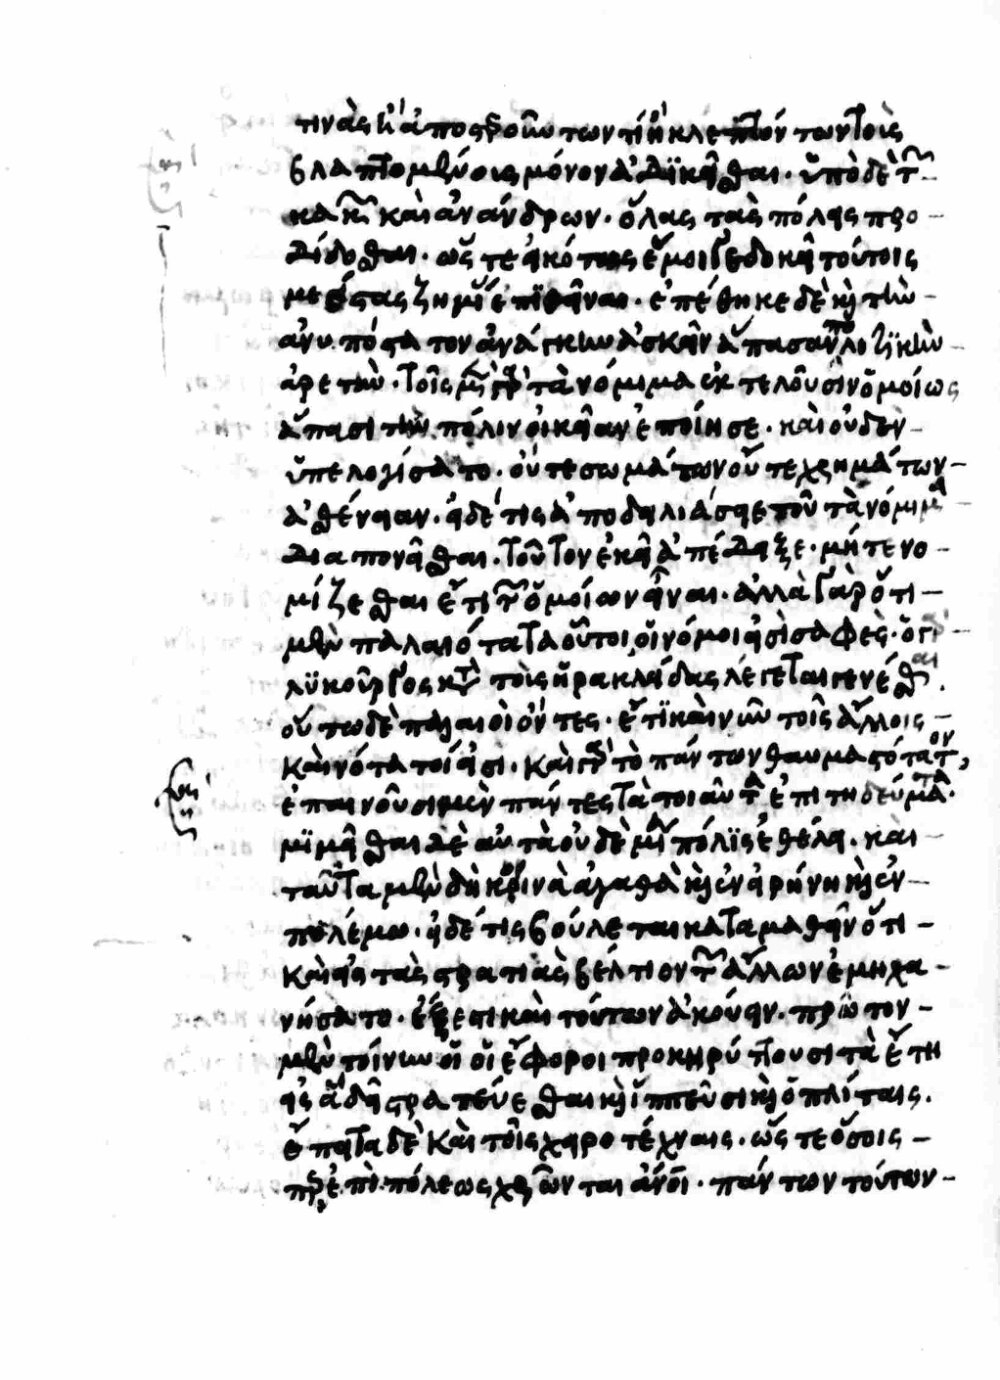 τινὰς ἢ ἀποστερούντων τι ἢ κλεπτόντων τοὺς
βλαπτομένους μόνον ἀδικεῖσθαι· ὑπὸ δὲ τῶν
κακῶν καὶ ἀνάνδρων· ὅλας τὰς πόλεις προ-
δίδοσθαι· ὥστε εἰκότως ἔμοιγε δοκεῖ τούτοις
μεγίστας ζημίας ἐπιθεῖναι· ἐπέθηκε δὲ καὶ τὴν
ἀνυπόστατον ἀνάγκην ἀσκεῖν ἅπασαν πολιτικὴν
ἀρετήν· τοῖς μὲν γὰρ τὰ νόμιμα ἐκτελοῦσιν ὁμοίως
ἅπασι τὴν πόλιν οἰκείαν ἐποίησε· καὶ οὐδὲν
ὑπελογίσατο· οὔτε σωμάτων οὔτε χρημάτων
ἀσθένειαν· εἰ δέ τις ἀποδειλιάσειε τοῦ τὰ νόμιμα
διαπονεῖσθαι· τοῦτον ἐκεῖ ἀπέδειξε· μήτε νο-
μίζεσθαι ἔτι τῶν ὁμοίων εἶναι· ἀλλὰ γὰρ ὅτι
μὲν παλαιότατα οὗτοι οἱ νόμοι εἰσὶ σαφές· ὁ γὰρ
λυκοῦργος κατὰ τοὺς ἡρακλείδας λέγεται γενέσθαι·
οὕτω δὲ παλαιοὶ ὄντες· ἔτι καὶ νῦν τοῖς ἄλλοις
καινότατοί εἰσι· καὶ γὰρ τὸ πάντων θαυμαστότατον,
ἐπαινοῦσι μὲν πάντες τὰ τοιαῦτα ἐπιτηδεύματα·
μιμεῖσθαι δὲ αὐτὰ οὐδὲ μία πόλις ἐθέλει· καὶ
ταῦτα μὲν δὴ κοινὰ ἀγαθὰ καὶ ἐν εἰρήνῃ καὶ ἐν
πολέμῳ· εἰ δέ τις βούλεται καταμαθεῖν ὅτι
καὶ εἰς τὰς στρατιὰς βέλτιον τῶν ἄλλων ἐμηχα-
νήσατο· ἔξεστι καὶ τούτων ἀκούειν· πρῶτον
μὲν τοίνυν οἱ ἔφοροι προκηρύττουσι τὰ ἔτη
εἰς ἃ δεῖ στρατεύεσθαι καὶ ἱππεῦσι καὶ ὁπλίταις·
ἔπειτα δὲ καὶ τοῖς χειροτέχναις· ὥστε ὅσοις
περ ἐπὶ πόλεως χρῶνται ἄνθρωποι· πάντων τούτων